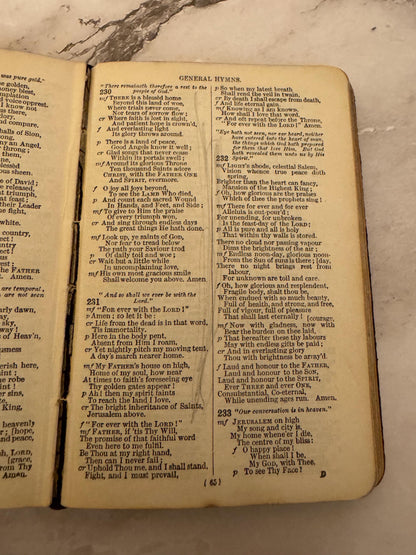 was pure gold."
e golden,
oney blest,
d voice opprest.
I know not
re;
compare.
alls of Sion,
ng,
ny an Angel,
throng:
in them,
ne;
lessed
s sheen.
of David;
released,
at triumph,
at feast;
their Leader
the fight,
white.
country,
ect!
country
ect!
us
st;
FATHER
Amen.
temporal,
are not seen
early dawn,
ay,
sky,
r;
of Heav'n,
erish here,
int the
robe
int
KING,
heavenly
hope,
and peace,
LORD,
(grace,
from Thy
Amen.
GENERAL HYMNS.
"There remaineth therefore a rest to the
people of God."
230
mf THERE is a blessed home
Beyond this land of woe,
Where trials never come,
Nor tears of sorrow flow;
cr Where faith is lost in sight,
And patient hope is crown'd,
f And everlasting light
Its glory throws around.
p There is a land of peace,
Good Angels know it well;
cr Glad songs that never cease
Within its portals swell;
mf Around its glorious Throne
Ten thousand Saints adore
CHRIST, with the FATHER One
And SPIRIT, evermore.
f O joy all joys beyond,
To see the LAMB Who died,
p And count each sacred Wound
In Hands, and Feet, and Side;
mf To give to Him the praise
Of every triumph won,
cr And sing through endless days
The great things He hath done.
mf Look up, ye saints of GOD,
Nor fear to tread below
The path your Saviour trod
p Of daily toil and woe;
cr Wait but a little while
In uncomplaining love,
mf His own most gracious smile
Shall welcome you above. Amen.
"And so shall we ever be with the
Lord."
231
mf "FOR ever with the LORD!"
p Amen; so let it be;
cr Life from the dead is in that word,
'Tis immortality.
p Here in the body pent,
Absent from Him I roam,
cr Yet nightly pitch my moving tent
A day's march nearer home.
mf My FATHER'S house on high,
Home of my soul, how near
At times to faith's foreseeing eye
Thy golden gates appear!
p Ah! then my spirit faints
To reach the land I love,
cr The bright inheritance of Saints,
Jerusalem above.
f "For ever with the LORD!"
mf FATHER, if 'tis Thy Will,
The promise of that faithful word
Even here to me fulfil.
Be Thou at my right hand,
Then can I never fail;
cr Uphold Thou me, and I shall stand,
Fight, and I must prevail,
p So when my latest breath
Shall rend the veil in twain,
cr By death I shall escape from death,
f And life eternal gain.
mf Knowing as I am known,
How shall I love that word,
cr And oft repeat before the Throne,
"For ever with the LORD!" Amen.
"Eye hath not seen, nor ear heard, neither
have entered into the heart of man,
the things which God hath prepared
for them that love Him. But God
hath revealed them unto us by His
Spirit."
232
mf LIGHT'S abode, celestial Salem,
Vision whence true peace doth
spring,
Brighter than the heart can fancy,
Mansion of the Highest King;
f Oh, how glorious are the praises
Which of thee the prophets sing!
mf There for ever and for ever
Alleluia is out-pour'd;
For unending, for unbroken
Is the feast-day of the LORD;
p All is pure and all is holy
That within thy walls is stored.
There no cloud nor passing vapour
Dims the brightness of the air;
mf Endless noon-day, glorious noon-day,
From the Sun of suns is there;
There no night brings rest from
labour,
For unknown are toil and care.
f Oh, how glorious and resplendent,
Fragile body, shalt thou be,
When endued with so much beauty,
Full of health, and strong, and free,
Full of vigour, full of pleasure
That shall last eternally!
mf Now with gladness, now with courage,
Bear the burden on thee laid,
p That hereafter these thy labours
May with endless gifts be paid;
cr And in everlasting glory
Thou with brightness be array'd.
f Laud and honour to the FATHER,
Laud and honour to the SON,
Laud and honour to the SPIRIT,
Ever THREE and ever ONE,
Consubstantial, Co-eternal,
While unending ages run. Amen.
233 "Our conversation is in heaven."
mf JERUSALEM on high
My song and city is,
My home whene'er I die,
The centre of my bliss:
f O happy place!
When shall I be,
My GOD, with Thee,
p To see Thy Face!
(65)
D